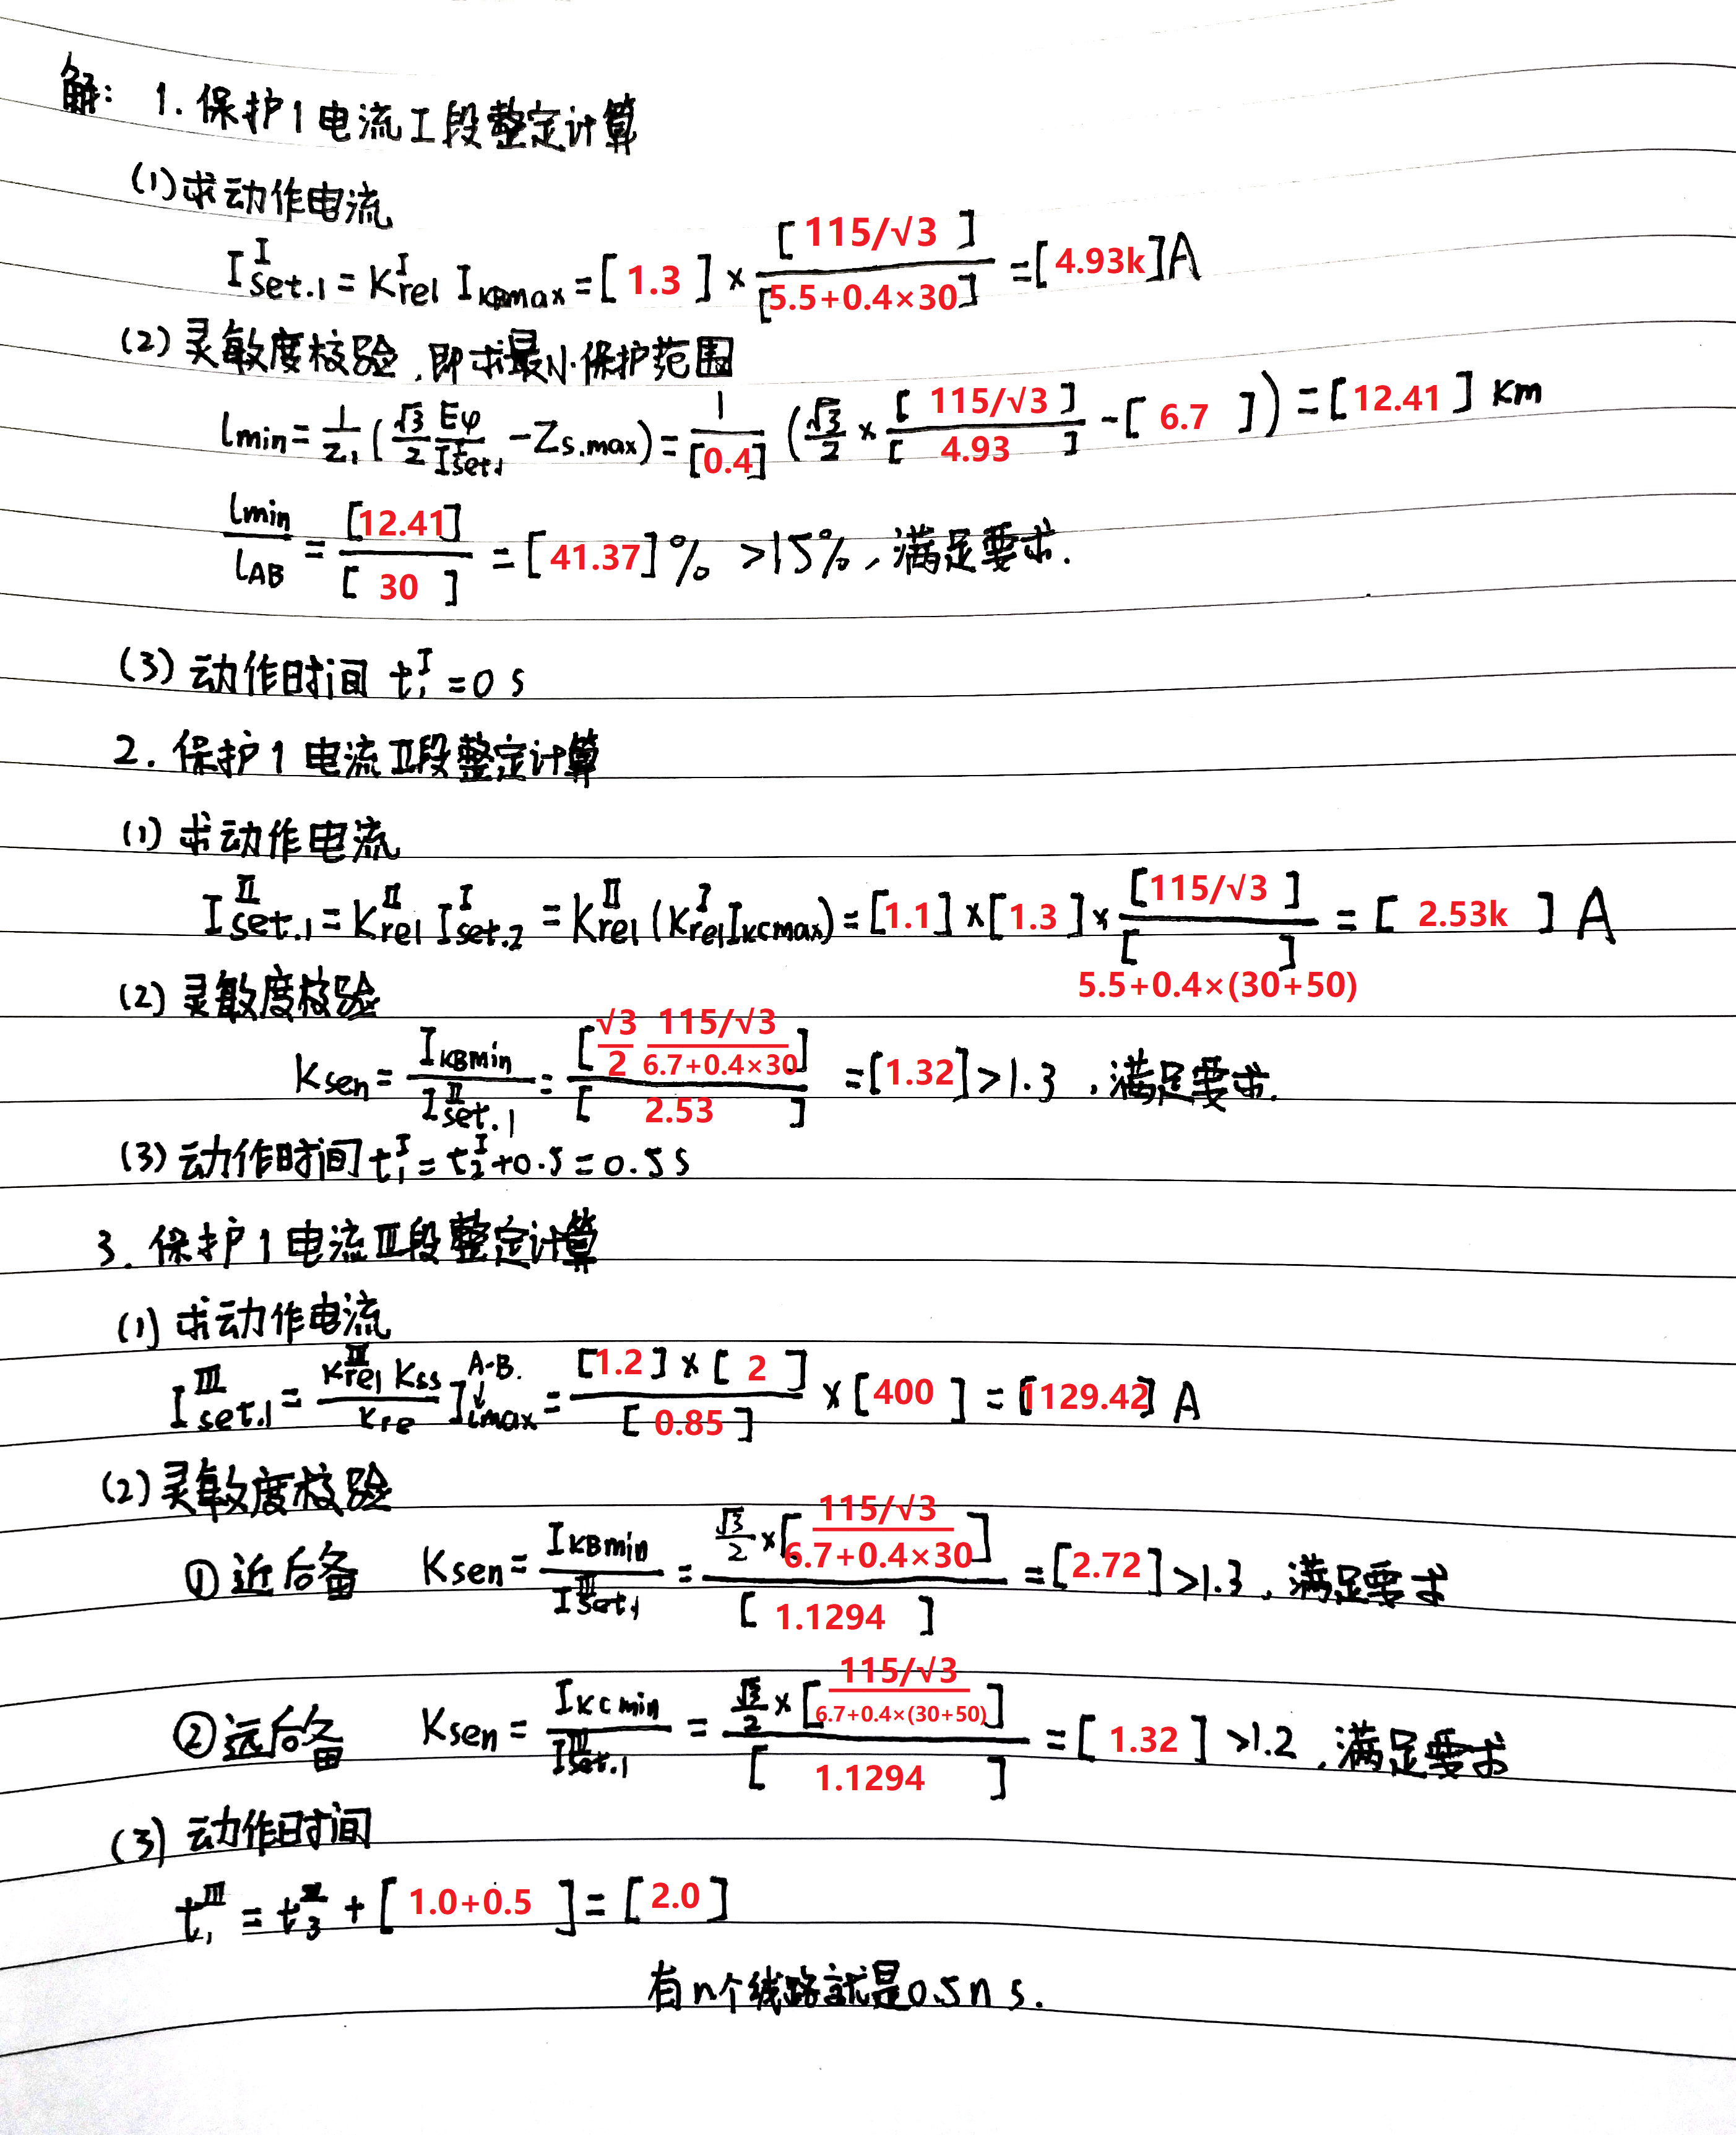 解: 1. 保护1电流I段整定计算
(1)求动作电流
I^I_set.1 = K^I_rel I_KBmax = [ 1.3 ] × [ 115/√3 ] / [5.5+0.4×30] = [4.93k]A
(2) 灵敏度校验,即求最小保护范围
lmin = 1/z₁ ( √3/2 Eφ/I^I_set.1 - Zs.max) = 1/[0.4] ( √3/2 × [ 115/√3 ] / [ 4.93 ] - [ 6.7 ] ) = [12.41 ] km
lmin/lAB = [12.41] / [ 30 ] = [ 41.37]% >15%, 满足要求.
(3) 动作时间 t^I_1 = 0 s
2. 保护1电流II段整定计算
(1) 求动作电流
I^II_set.1 = K^II_rel I^I_set.2 = K^II_rel (K^I_rel I_KCmax) = [1.1] × [1.3] × [115/√3 ] / [ 5.5+0.4×(30+50) ] = [ 2.53k ] A
(2) 灵敏度校验
Ksen = I_KBmin / I^II_set.1 = [ √3/2 115/√3 / 6.7+0.4×30 ] / [ 2.53 ] = [1.32] >1.3 ,满足要求.
(3) 动作时间 t^I_1 = t^I_2 + 0.5 = 0.5 s
3. 保护1电流III段整定计算
(1) 求动作电流
I^III_set.1 = K^III_rel Kss / Kre I^A-B._Lmax = [1.2 ] × [ 2 ] / [ 0.85 ] × [ 400 ] = [1129.42] A
(2) 灵敏度校验
①近后备 Ksen = I_KBmin / I^III_set.1 = √3/2 × [ 115/√3 / 6.7+0.4×30 ] / [ 1.1294 ] = [2.72 ] >1.3, 满足要求
②远后备 Ksen = I_KCmin / I^III_set.1 = √3/2 × [ 115/√3 / 6.7+0.4×(30+50) ] / [ 1.1294 ] = [ 1.32 ] >1.2 ,满足要求
(3) 动作时间
t^III_1 = t^III_3 + [ 1.0+0.5 ] = [ 2.0 ]
有n个线路就是0.5n s.